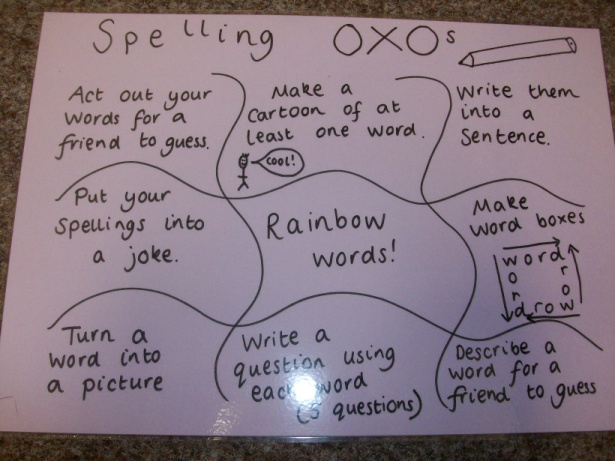 Spelling OXOs
Act out your
words for a
friend to guess.
Make a
cartoon of at
least one word.
COOL!
Write them
into a
sentence.
Put your
spellings into
a joke.
Rainbow
words!
Make
word boxes
word
o r
r o
drow
Turn a
word into
a picture
Write a
question using
each word
(5 questions)
Describe a
word for a
friend to guess